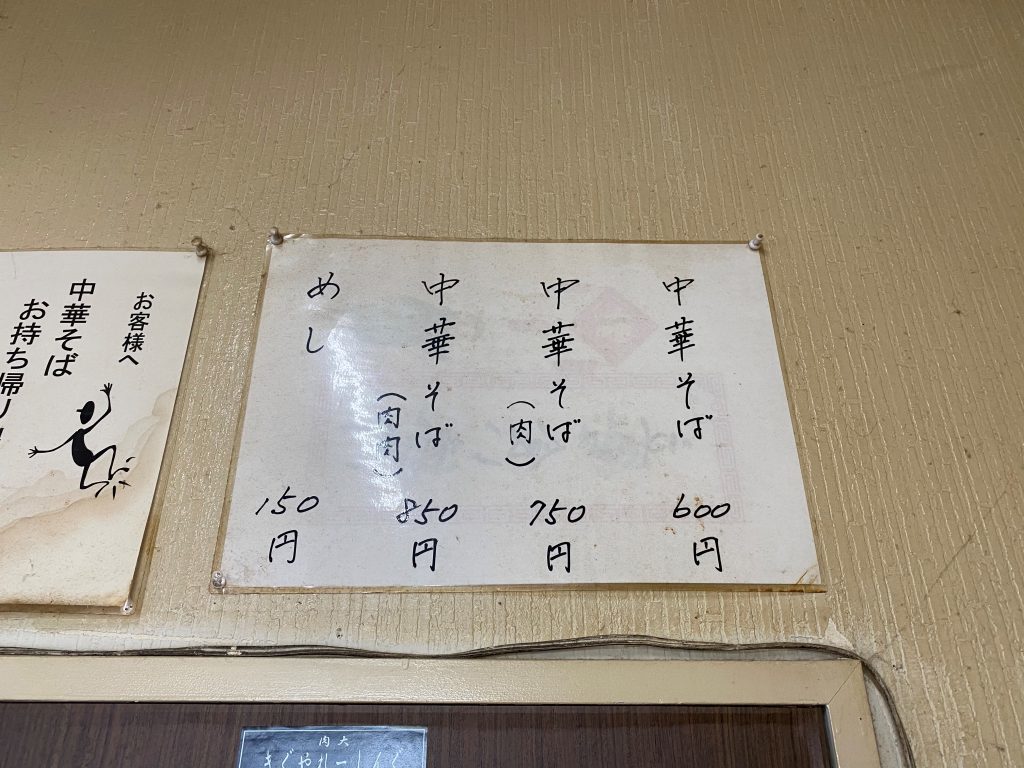 中華そば
600円
中華そば
(肉)
750円
中華そば
(肉肉)
850円
めし
150円
お客様へ
中華そば
お持ち帰り